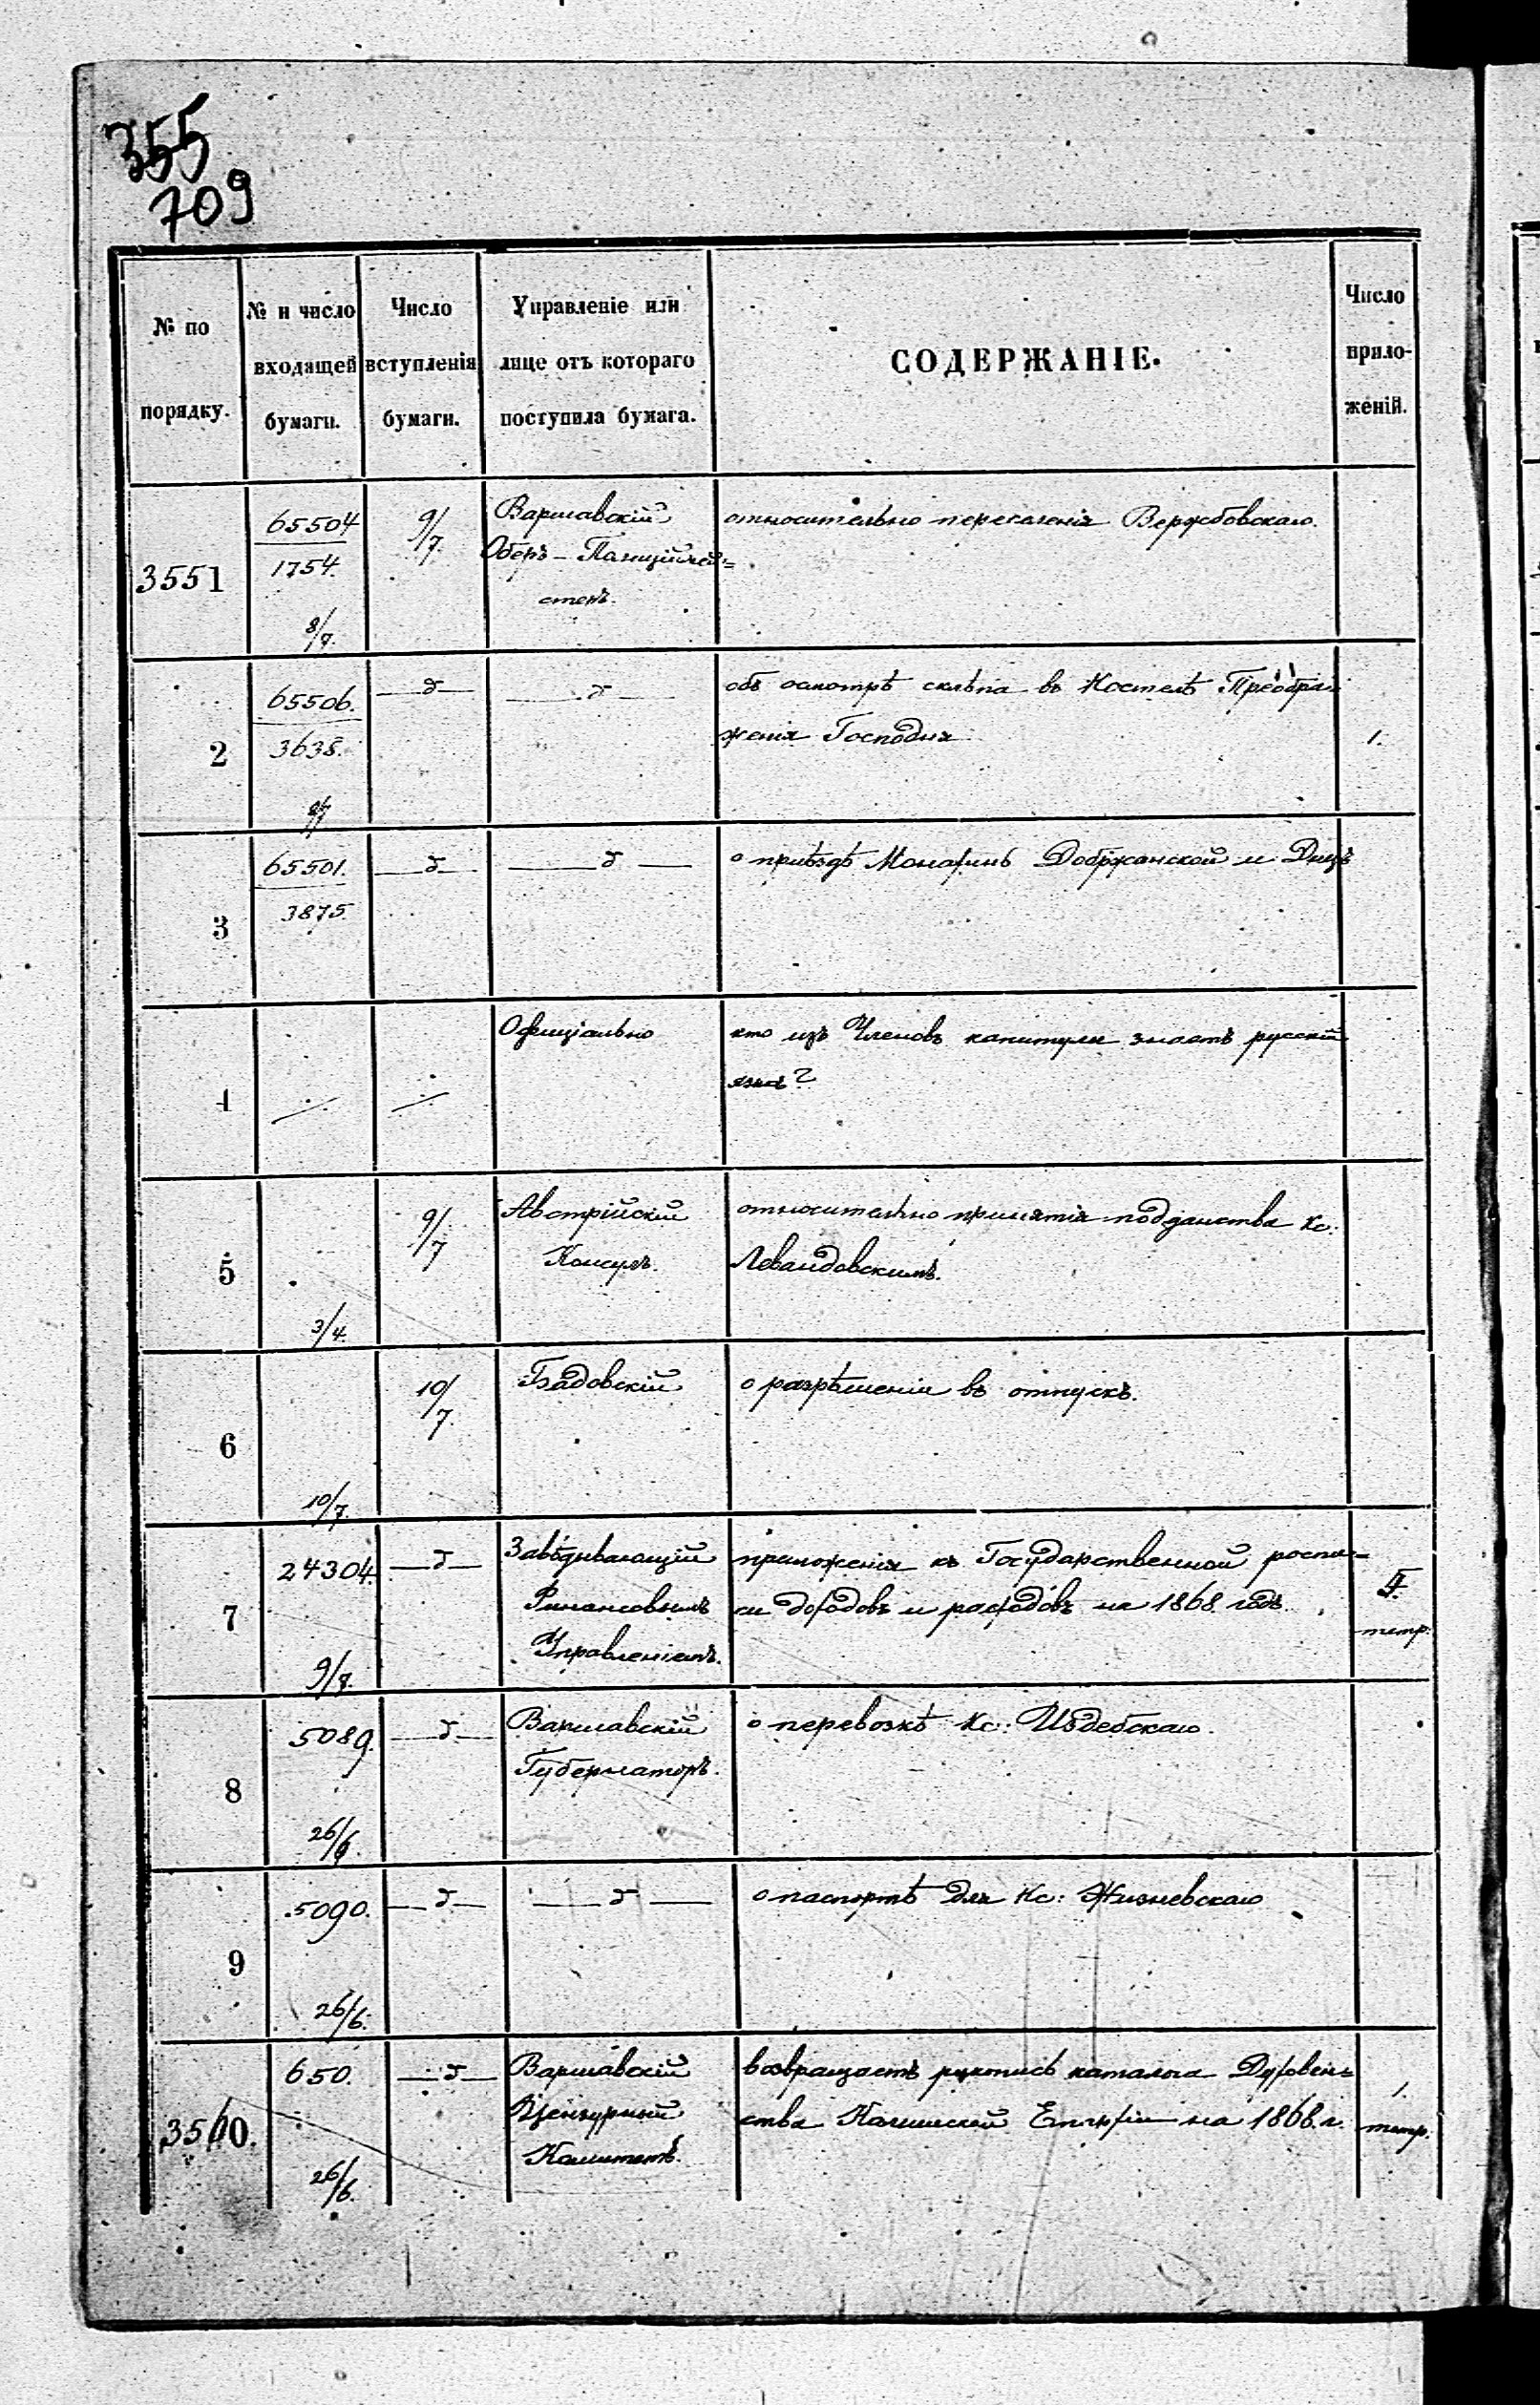 355
709
№ по порядку.
№ и число входящей бумаги.
Число вступленія бумаги.
Управленіе или лице отъ котораго поступила бумага.
СОДЕРЖАНІЕ.
Число прило- женій.
3551
65504
1754.
8/7.
9/7.
Варшавскій
Оберъ-Полиціймей=
стеръ.
относительно переселенія Вержбовскаго.
2
65506.
3638.
8/7
об осмотрѣ склепа въ Костелѣ Преобра=
женія Господня
1.
3
65501.
3875.
о приѣздѣ Монахинь Добржанской и Дицъ
4
Офиціально
кто изъ Членовъ капитулы знаетъ русскій
языкъ?
5
3/4.
9/7
Австрійскій
Консулъ.
относительно принятія подданства Кс.
Левандовскимъ.
6
10/7.
10/7.
Гзадовскій
о разрѣшеніи въ отпускъ.
7
24304.
9/7.
Завѣдывающій
Финансовымъ
Управленіемъ.
приложенія къ Государственной роспи=
си доходовъ и расходовъ на 1868 годъ
тетр.
8
5089.
26/6.
Варшавскій
Губернаторъ.
о перевозкѣ Кс: Издебскаго.
9
5090.
26/6.
о паспортѣ для Кс: Жизневскаго
3560.
650.
26/6.
Варшавскій
Цензурный
Комитетъ.
возвращаетъ рукопись каталога Духовен=
ства Калишской Епархіи на 1868 г.
1.
тетр.